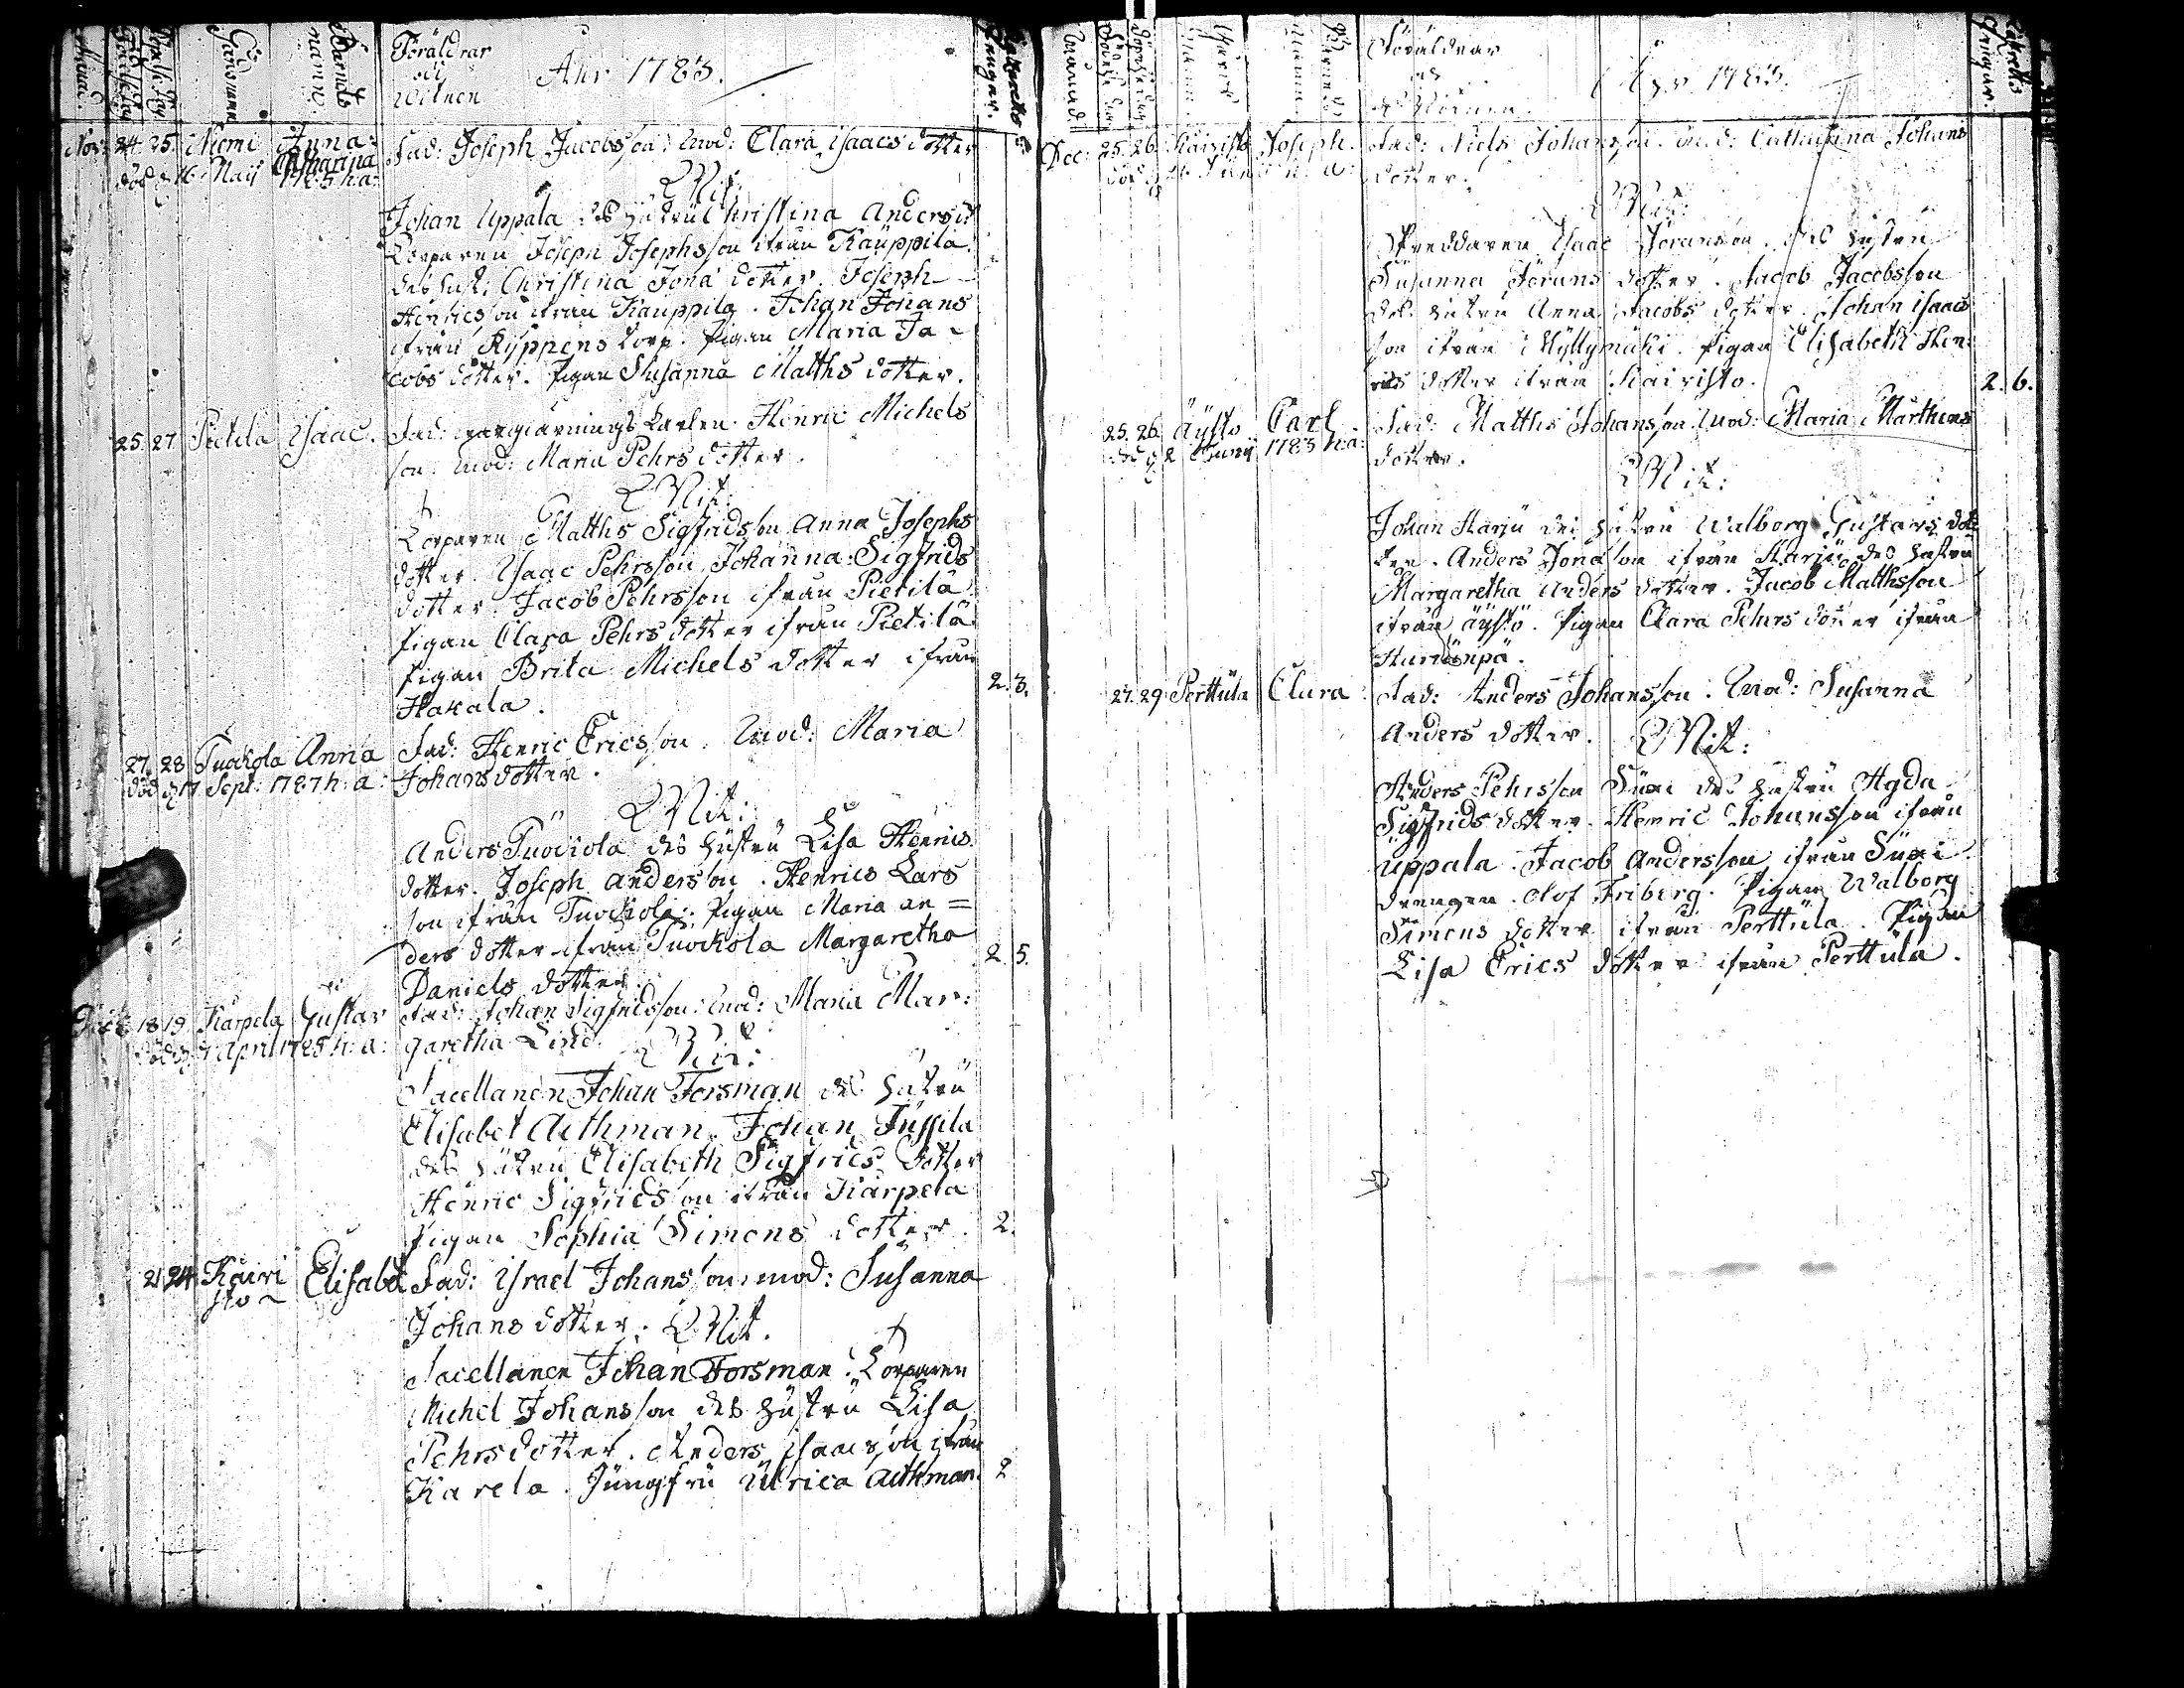 Månad.
Föd:s Dag
Döpelse Dag
Gårdsnamn
Barnets namn.
Föräldrar
och
Witnen
Ahr 1783.
Kyrkotags Pengar.
Nov: 24. 25. Niemi Anna Catharina Fad: Joseph Jacobsson. Mod: Clara Isaacs dotter
död d 16 Maij 1785 h.a.
Wit:
Johan Uppala des hustru Christina Anders d:
Torparen Joseph Josephsson ifrån Kauppila
des hust: Christina Jona dotter. Joseph
Henricsson ifrån Kauppila. Johan Johans
ifrån Kyppens torp. Pigan Maria Ja-
cobs dotter. Pigan Susanna Matths dotter.
25. 27 Pietila Isaac. Fad: Henric Michels
son. Mod: Maria Pehrs dotter.
Wit:
Torparen Matths Sigfridsson Anna Josephs
dotter. Isaac Pehrsson Johanna Sigfrids
dotter. Jacob Pehrsson ifrån Pietilä
Pigan Clara Pehrs dotter ifrån Pietilä
Pigan Brita Michels dotter ifrån
Hakala. 2. 3.
27. 28 Tuockola Anna Fad: Henric Ericsson. Mod: Maria
död d 17 Sept: 1787 h: a: Johans dotter.
Wit:
Anders Tuockola des hustru Lisa Henrics
dotter. Joseph Andersson. Henrics Lars
son ifrån Tuockola. Pigan Maria An=
ders dotter ifrån Tuockola Margaretha 2. 5.
Daniels dotter.
Dec: 18 19 Karpela Gustav Fad: Johan Sigfridsson. Mod: Maria Mar:
April 1785 h: a: garetha Lind.
Wit:
Sacellanen Johan Forsman des hustru
Elisabet Aethman. Johan Jussila
des hustru Elisabeth Sigfrids dotter
Henric Sigfridsson ifrån Karpela
Pigan Sophia Simons dotter. 2.
21 24 Kairi Elisabet Fad: Israel Johansson. mod: Susanna
sto
Johans dotter. Wit.
Sacellanen Johan Forsman. Torparen
Michel Johansson des hustru Lisa
Pehrs dotter. Anders Isaacsson ifrån
Karela. Jungfru Ulrica Aethman. 2
Föräldrar
och
Witnen.
Ahr 1783.
Dec: 25. 26. Kairisto Joseph. Fad: Niels Johansson. Mod: Catharina Johans
dotter.
Wit:
Isaac Göransson. des hustru
Susanna Görans dotter. Jacob Jacobsson
des hustru Anna Jacobs dotter. Johan Isaacs
son ifrån Myllymäki. Pigan Elisabeth Hen:
rics dotter ifrån Kairisto. 2. 6.
25. 26. Äystö Carl Fad: Matths Johansson. Mod: Maria Marthens
d 2 1785 h.a: dotter.
Wit:
Johan Harju des hustru Walborg Gustavs dot
ter. Anders Jonasson ifrån Harju des hustru
Margaretha Anders dotter. Jacob Matthsson
ifrån Äystö. Pigan Clara Pehrs dotter ifrån
Hurionpä.
27. 29 Perttula Clara Fad: Anders Johansson. Mod: Susanna
Anders dotter. Wit:
Anders Pehrsson des hustru Agda
Sigfrids dotter. Henric Johansson ifrån
Uppala. Jacob Andersson ifrån
Drengen Olof Friberg. Pigan Walborg
Simons dotter ifrån Perttula. Pigan
Lisa Erics dotter ifrån Perttula.